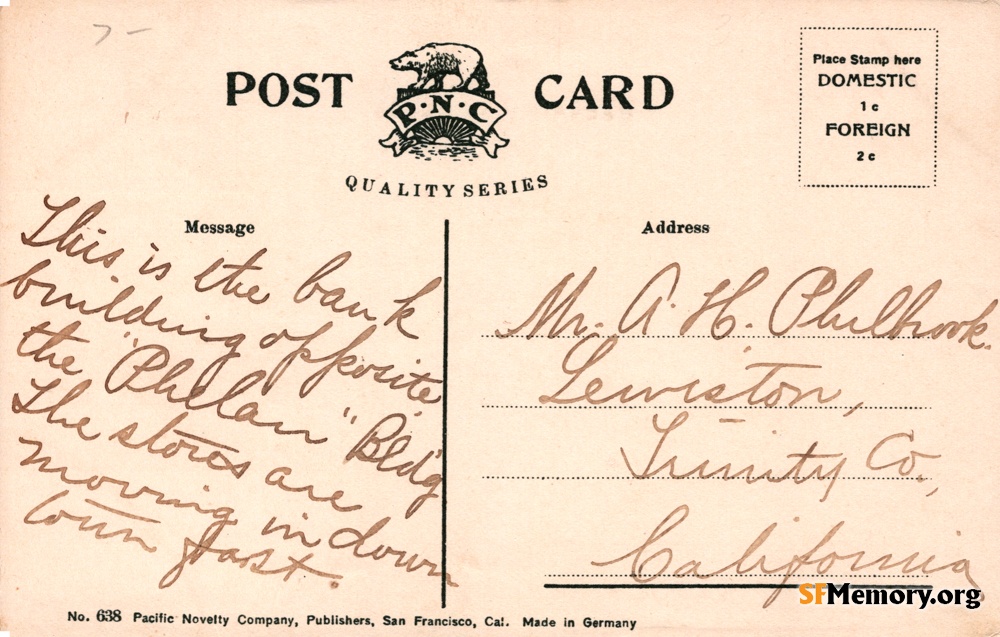 POST CARD
P·N·C
QUALITY SERIES
Place Stamp here
DOMESTIC
1c
FOREIGN
2c
Message
This is the bank
building opposite
the "Phelan" Bld'g
The stores are
moving in down
town fast.
Address
Mr. A. H. Philbrook.
Lewiston,
Trinity Co.,
California
No. 638 Pacific Novelty Company, Publishers, San Francisco, Cal. Made in Germany
SFMemory.org